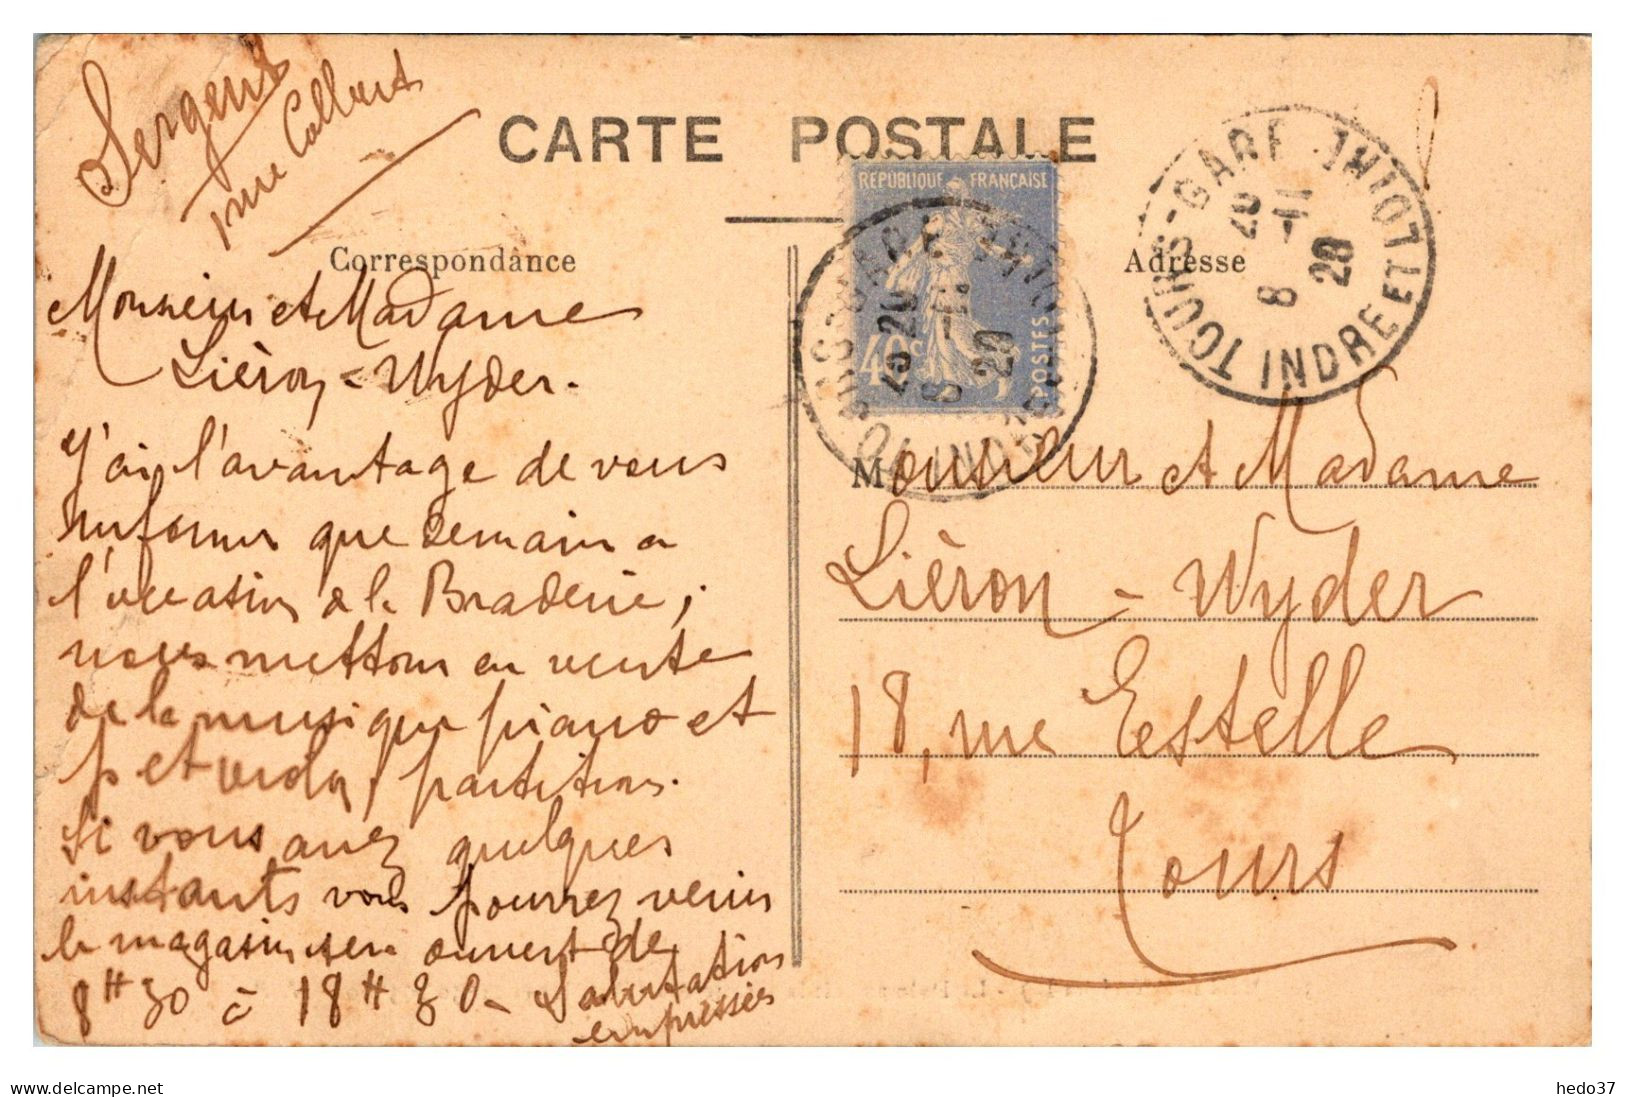 CARTE POSTALE
Sergent
rue Colbert
Correspondance
Monsieur et Madame
Lièron - Wyder.
J'ai l'avantage de vous
informer que demain a
l'occasion de la Braderie,
nous mettons en vente
de la musique piano et
p et partitions.
Si vous avez quelques
instants vous pourrez venir
le magasin sera ouvert de
8H30 à 18H30 - Salutation
empressées
REPUBLIQUE FRANÇAISE
40c
POSTES
TOURS-GARE
INDRE ET LOIRE
8 -11
28
Adresse
Monsieur et Madame
Lièron - Wyder
18, rue Estelle
Tours
delcampe.net
hedo37